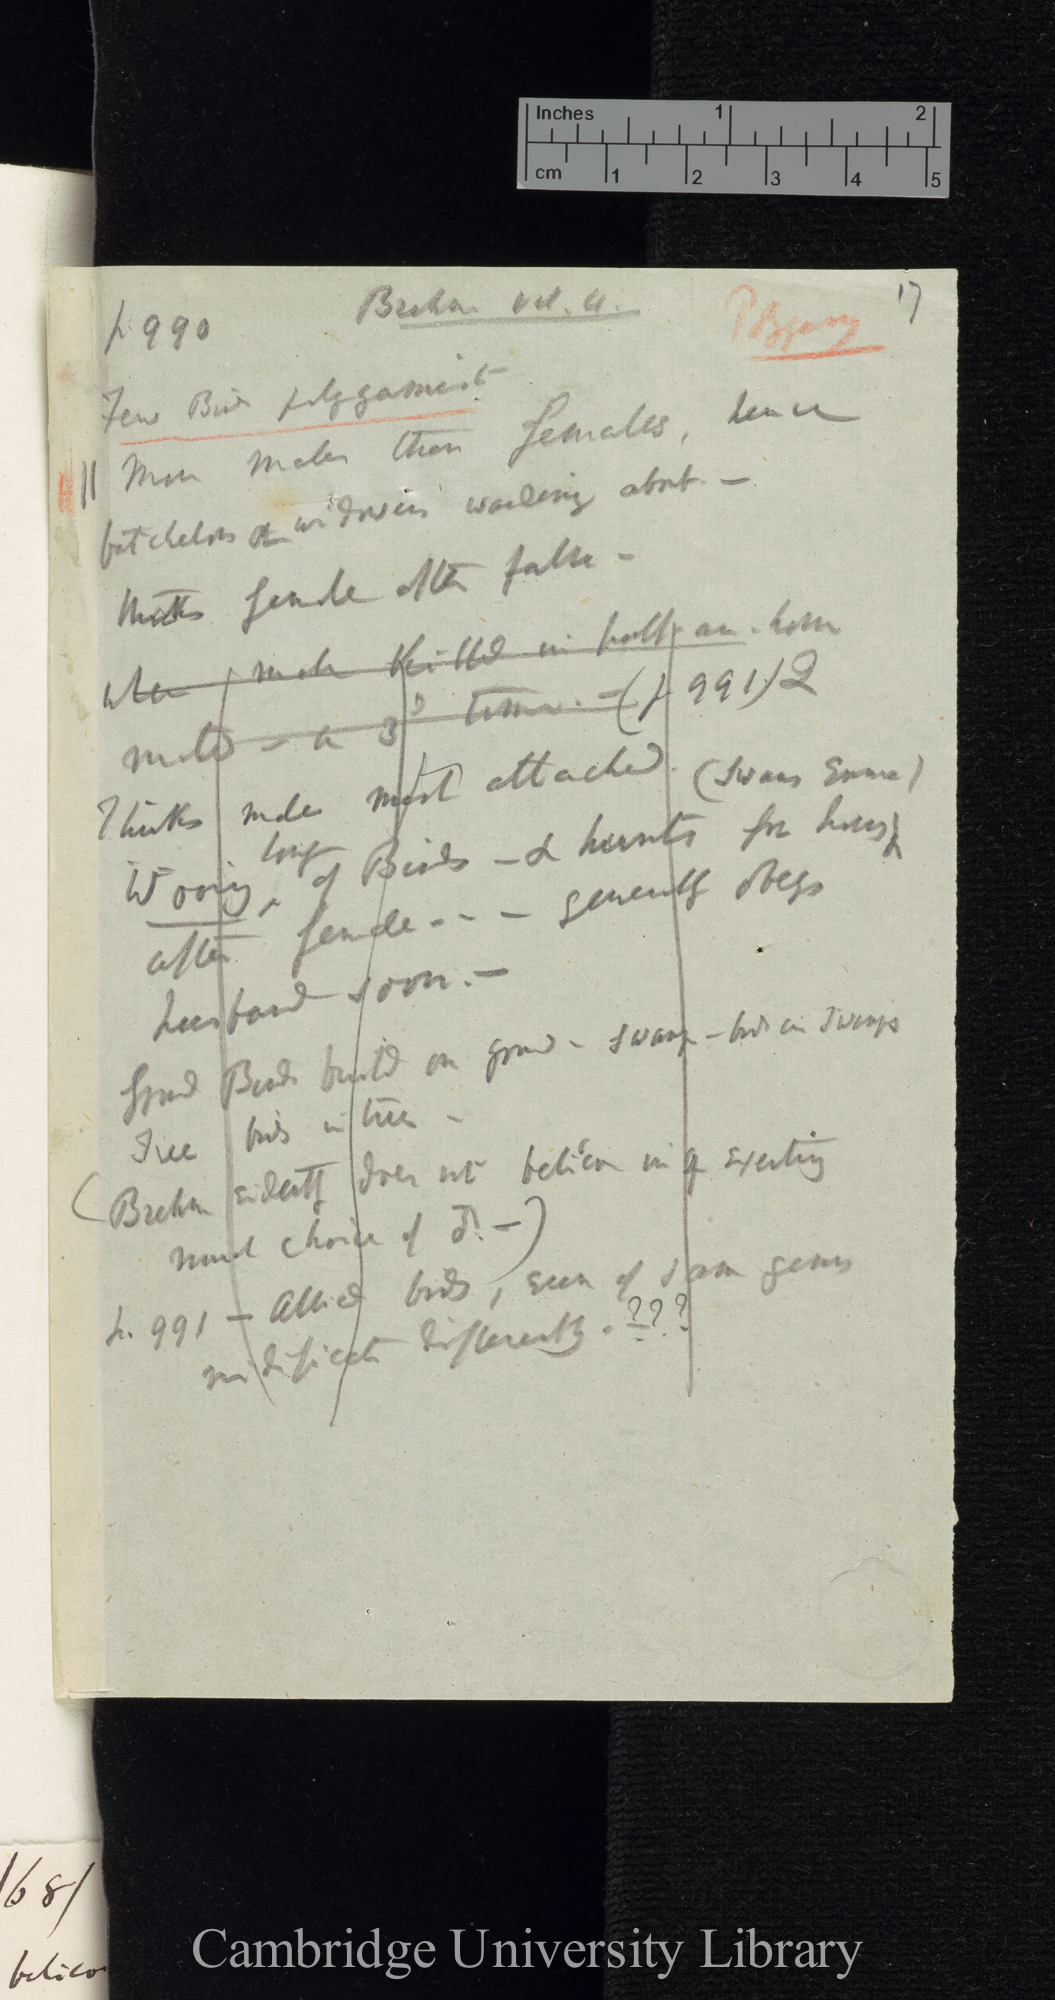 Inches 1 2
cm 1 2 3 4 5
17
p 990 Brehm vol. 4.
Few Birds polygamist
More males than females, hence
batchelors & widowers wandering about. —
thinks female after false —
when male killed in half an hour
mated — a 3d time. — (p 991)
Thinks males most attached. (Swans Emma)
Wooing, long of Birds — & hunts for hours
after female - - - generally obeys
husband soon. —
Ground Birds build on ground - Swamp - birds in Swamps
Tree birds in trees -
(Brehm evidently does not believe in exerting
much choice of ♂. —)
p. 991 — Allied birds, even of same genus
nidificate differently. ???
/68/
believe
Cambridge University Library